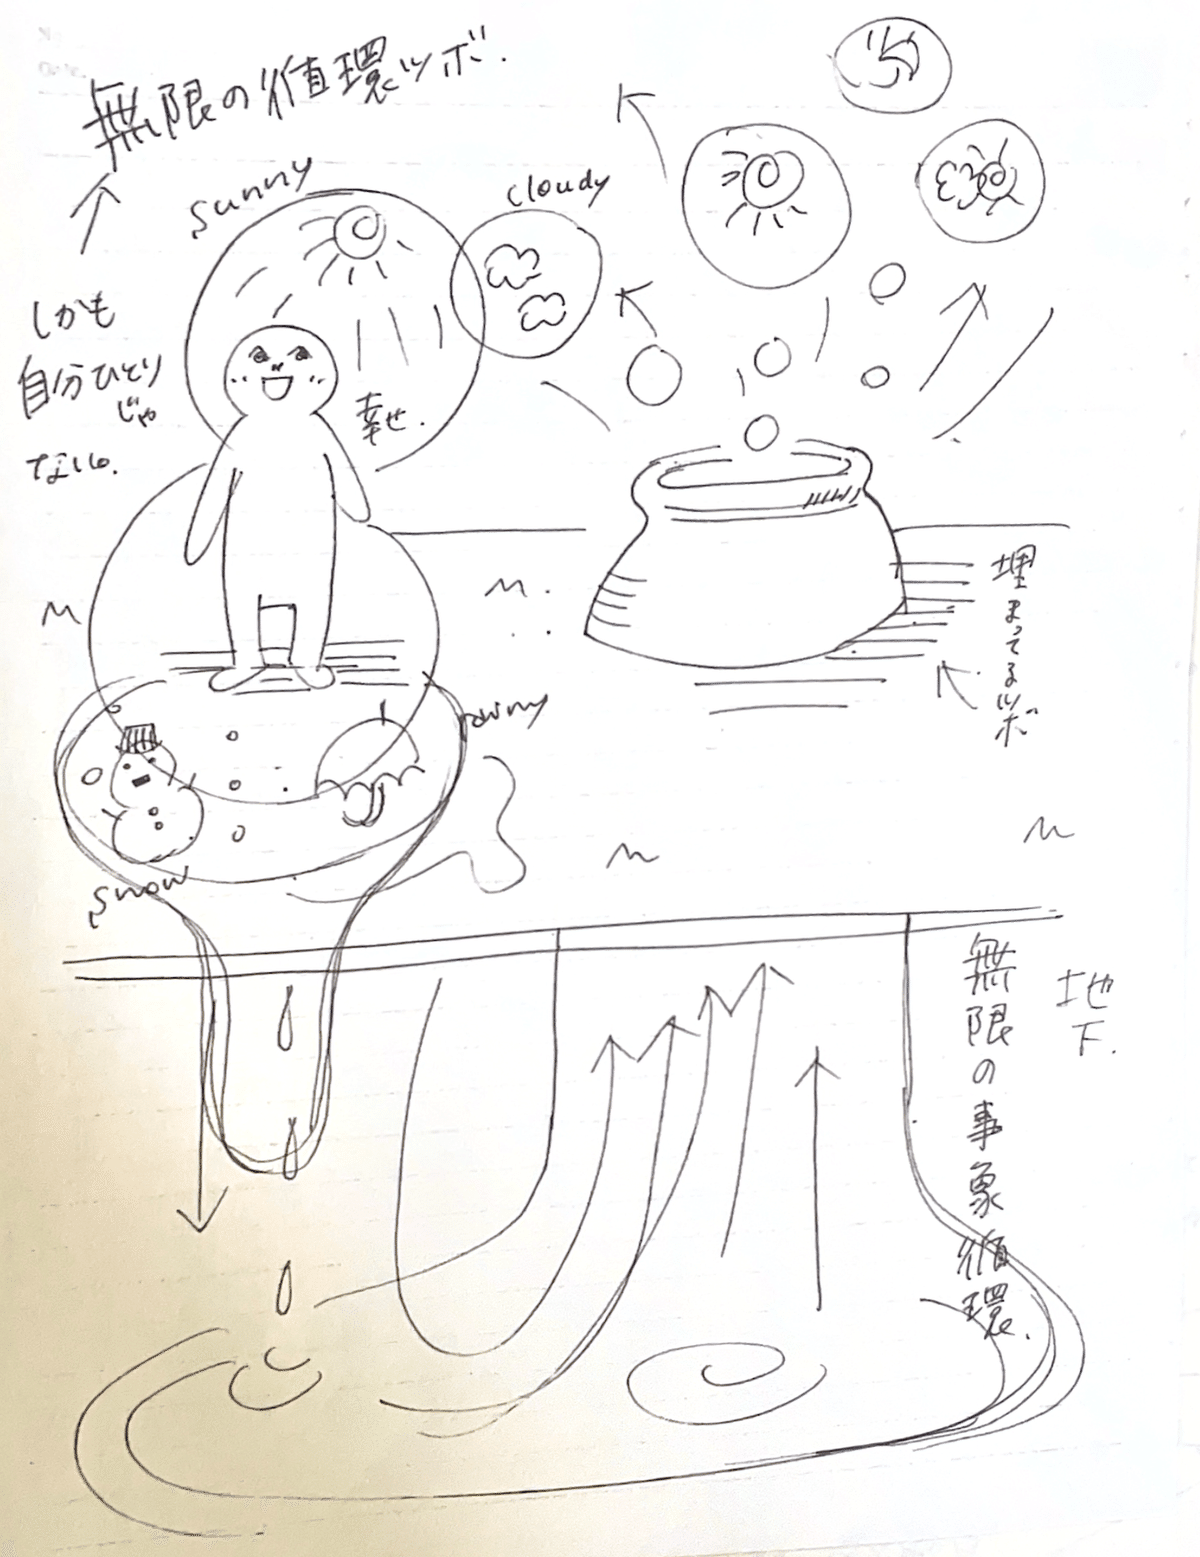 無限の循環ツボ.
sunny
cloudy
しかも
自分ひとり
じゃ
ない.
幸せ.
埋まってるツボ
rainy
snow
地下.
無限の事象循環.